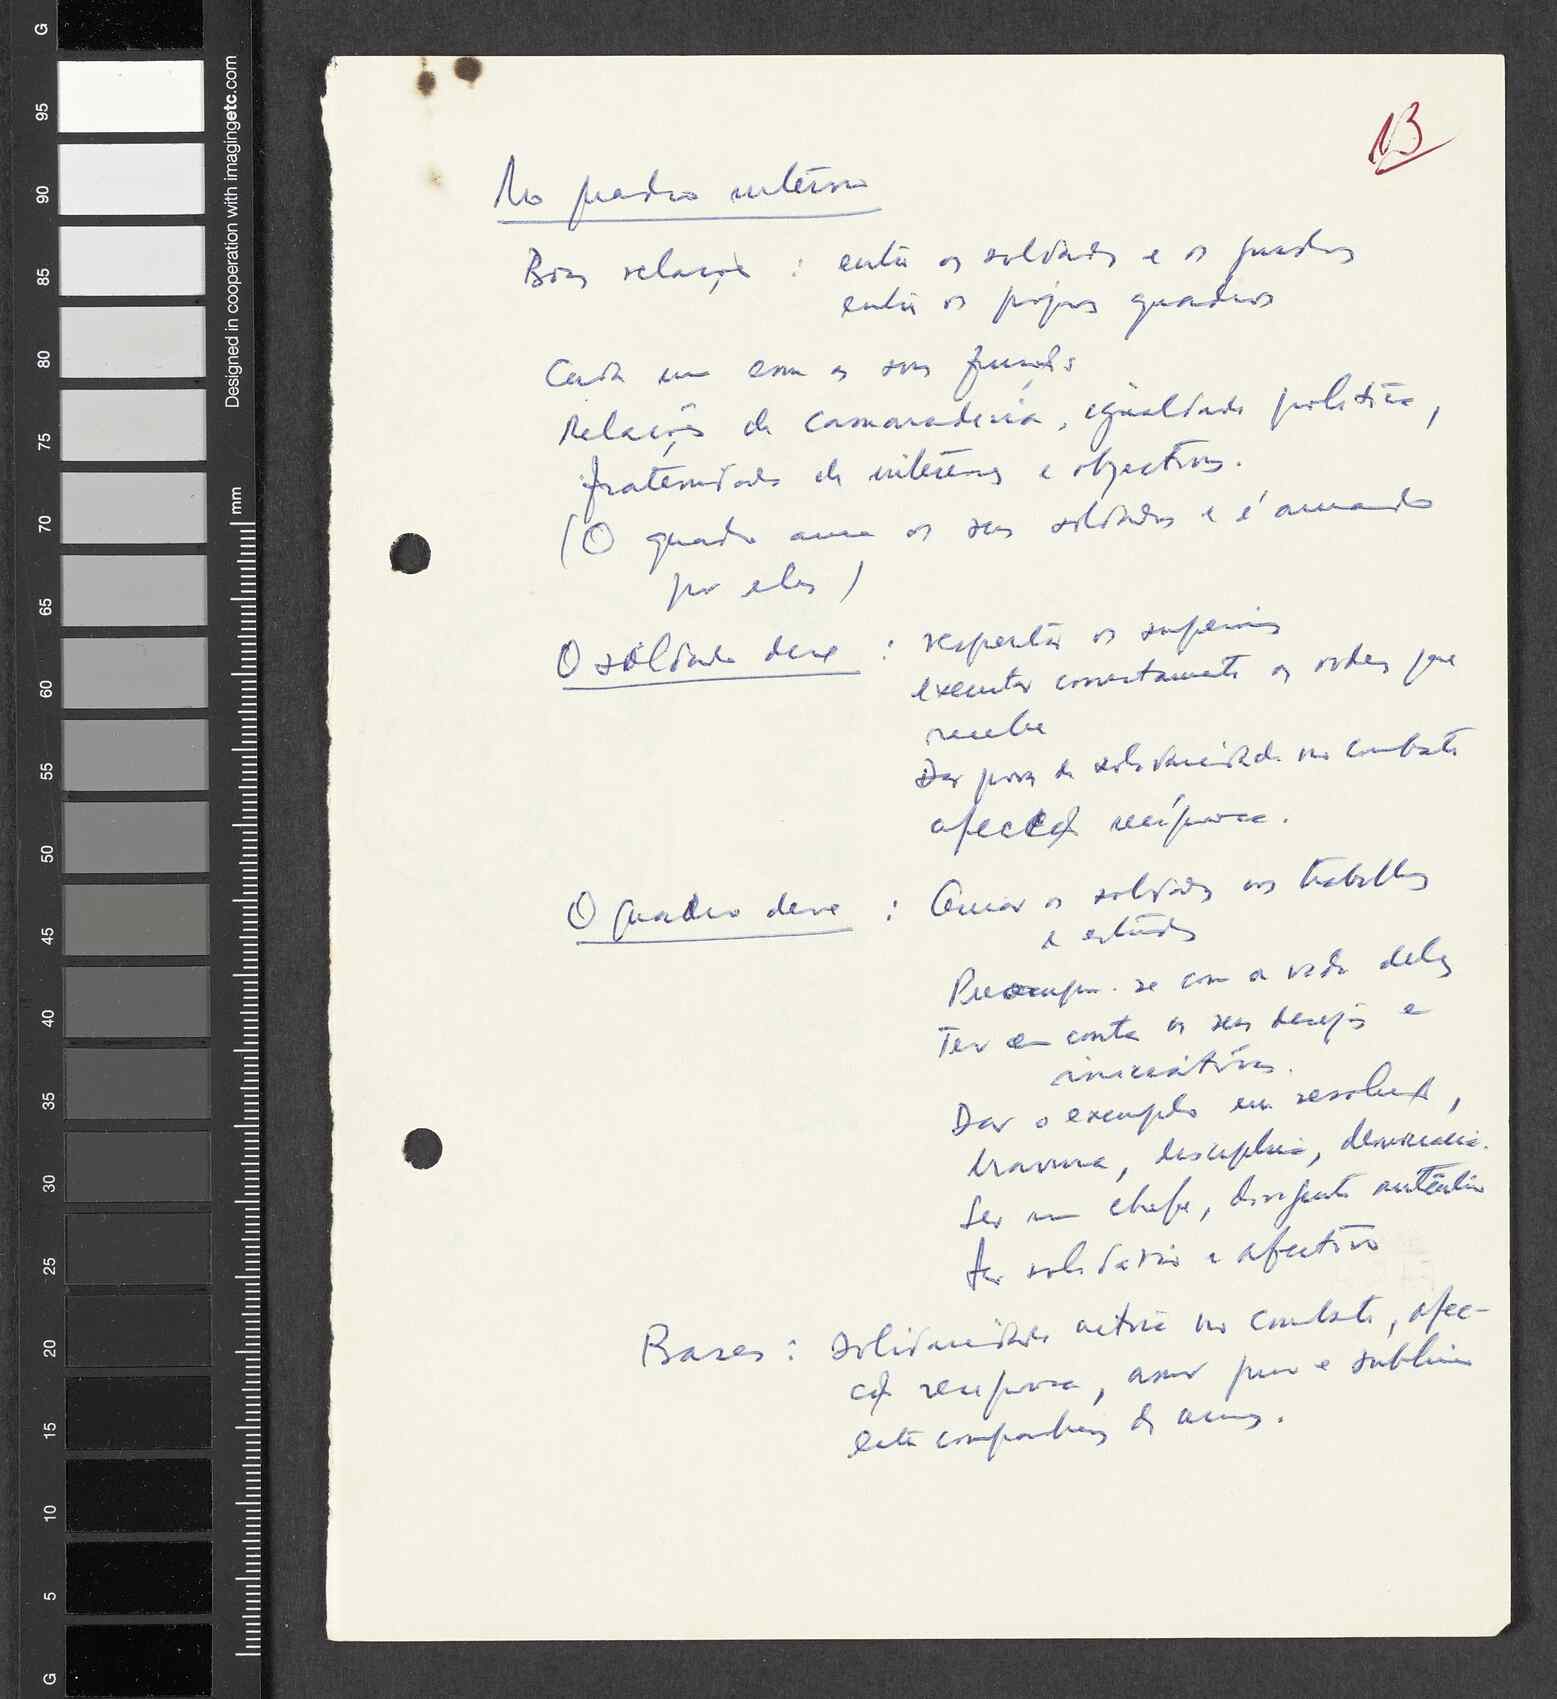 13
No quadro interno
Boas relações : entre os soldados e os quadros
entre os próprios quadros
Cada um com as suas funções
Relações de camaradaria, igualdade política,
fraternidade de interesses e objectivos.
(O quadro ama os seus soldados e é amado
por eles)
O soldado deve : respeitar os superiores
executar correctamente as ordens que
recebe
Dar prova de solidariedade no combate
afecção recíproca.
O quadro deve : Guiar os soldados nos trabalhos
e estudos
Preocupar-se com a vida deles
Ter em conta os seus desejos e
iniciativas.
Dar o exemplo em resolução,
bravura, disciplina, democracia.
Ser um chefe, dirigente autêntico
Ser solidário e afectivo
Bases : solidariedade activa no combate, afec-
ção recíproca, amor puro e sublime
entre companheiros de armas.
Designed in cooperation with imagingetc.com
mm
G
95
90
85
80
75
70
65
60
55
50
45
40
35
30
25
20
15
10
5
G